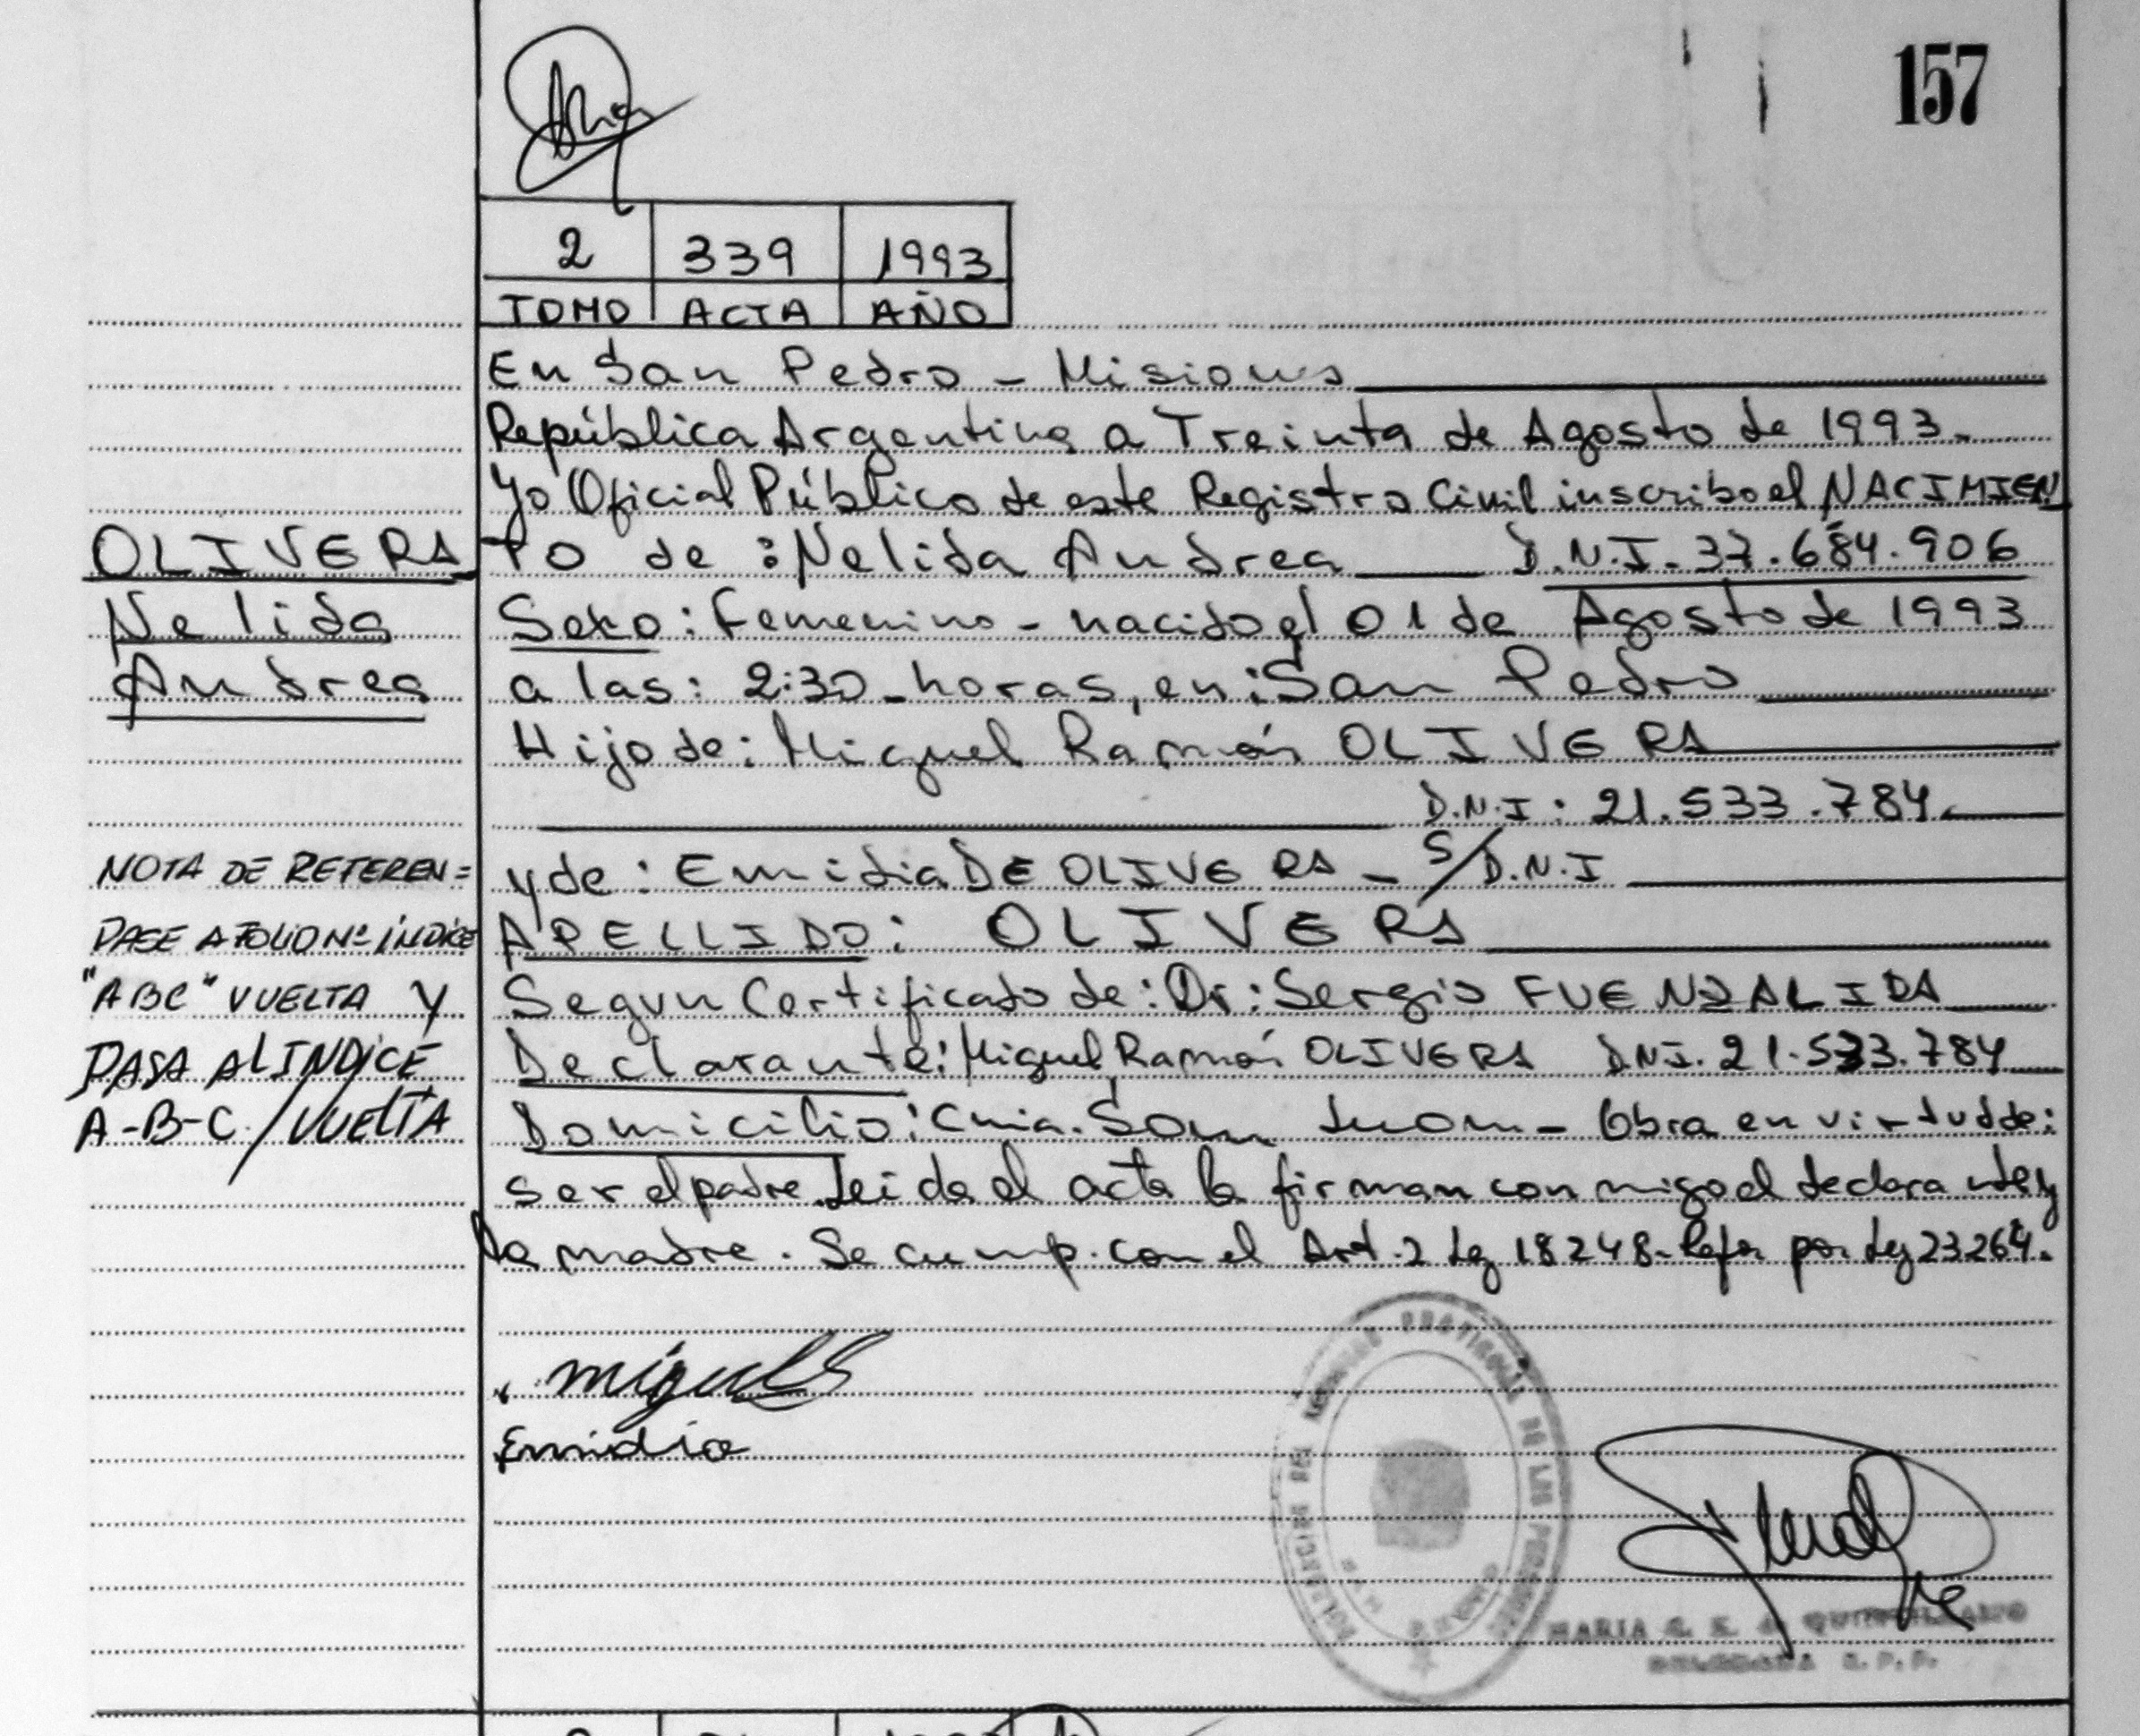 157
2 339 1993
TOMO ACTA AÑO
En San Pedro - Misiones
República Argentina a Treinta de Agosto de 1993.
Yo Oficial Público de este Registro Civil inscribo el NACIMIEN
TO de : Nelida Andrea D.N.I. 37.684.906
Sexo : Femenino - nacido el 01 de Agosto de 1993
a las : 2:30 - horas, en : San Pedro
Hijo de : Miguel Ramón OLIVERA
D.N.I : 21.533.784.
y de : Emidia DE OLIVERA - S/D.N.I
APELLIDO : OLIVERA
Segun Certificado de : Dr : Sergio FUENZALIDA
Declarante : Miguel Ramón OLIVERA DNI. 21.533.784
Domicilio : Cnia. San Juan - Obra en virtud de :
ser el padre. Leida el acta la firman conmigo el declarante y
la madre. Se cump. con el Art. 2 Ley 18248 - Refor por Ley 23264.
OLIVERA
Nelida
Andrea
NOTA DE REFEREN=
PASE A FOLIO Nº ÍNDICE
"ABC" VUELTA Y
PASA AL INDICE
A-B-C / VUELTA
miguel
Emidia
PROVINCIAL DE LAS PERSONAS
MARIA
DELEGADA R.P.P.